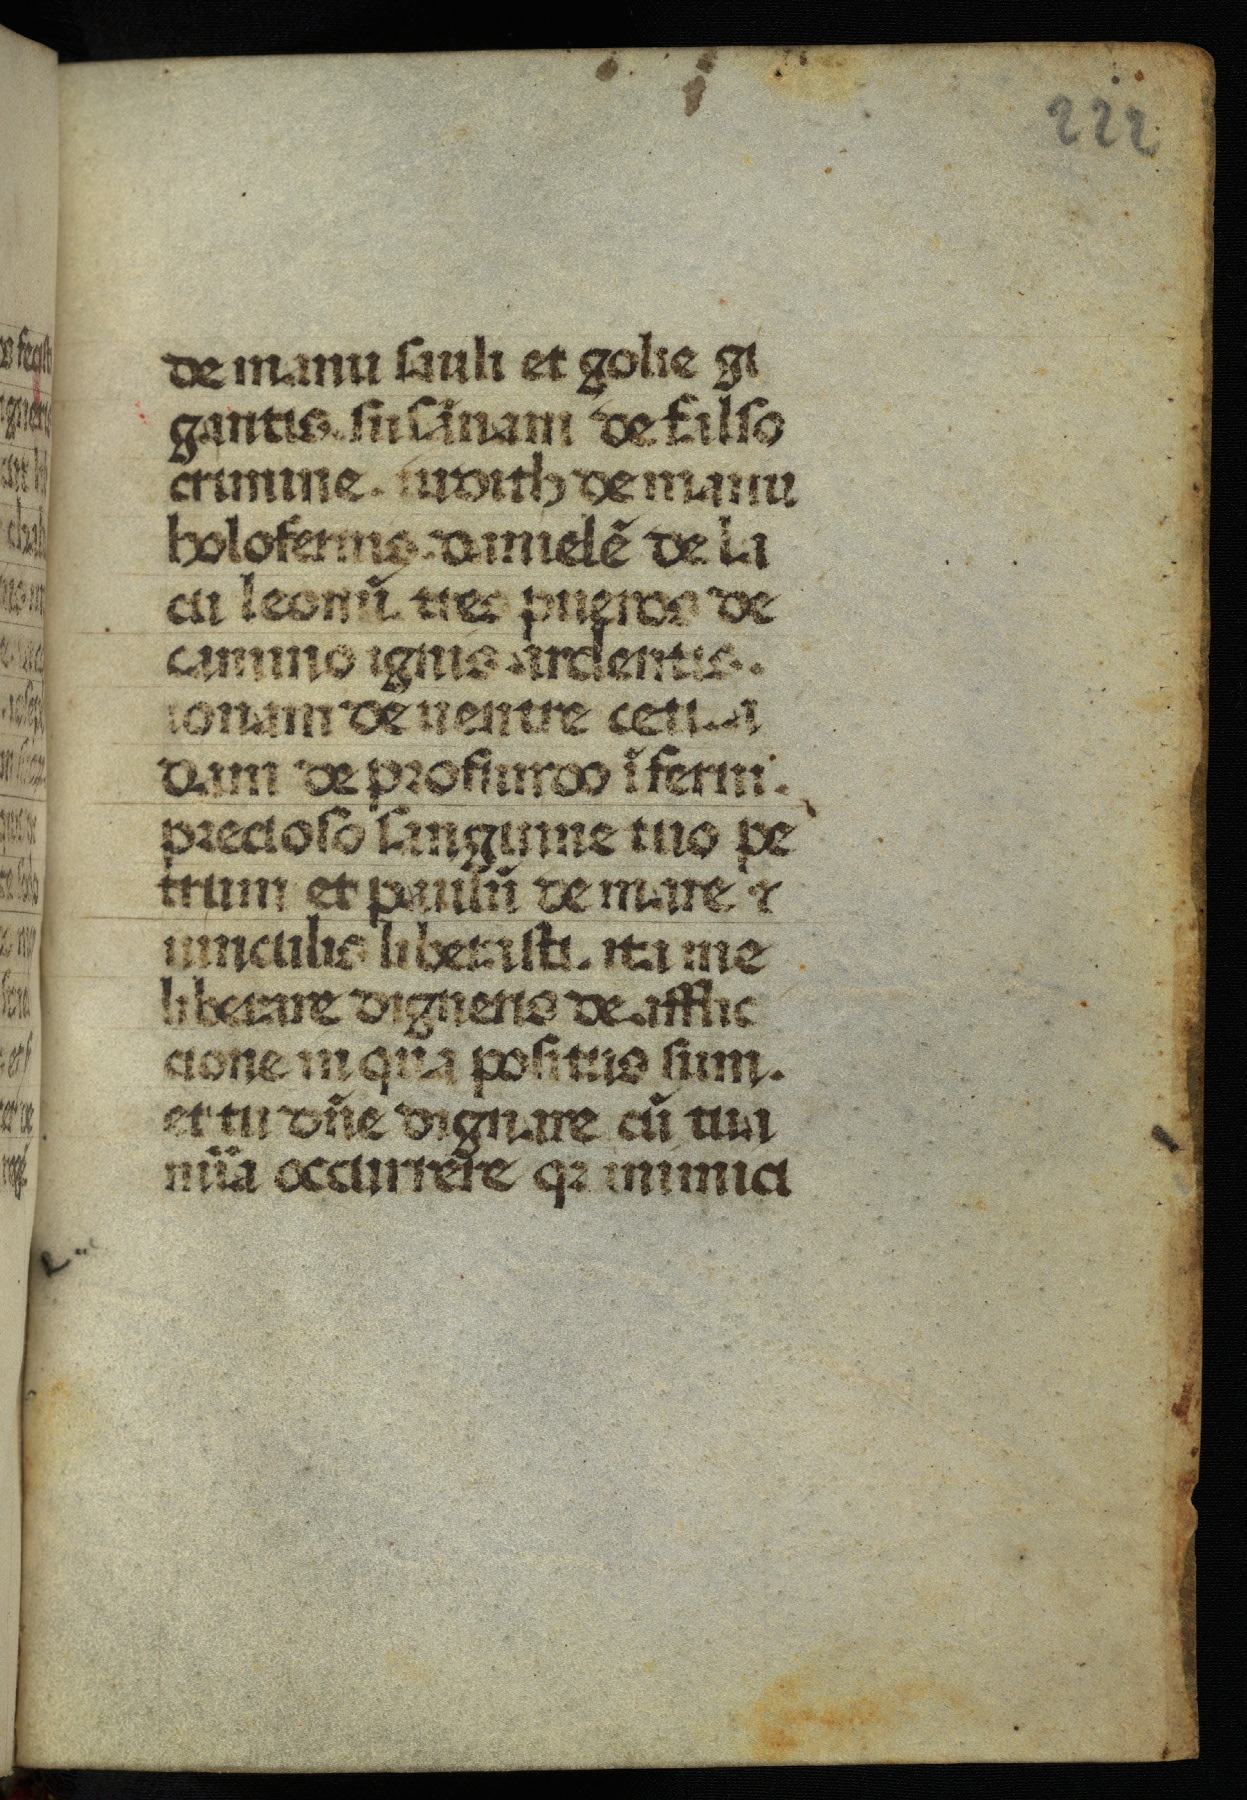 222
de manu sauli et golie gi
gantis. susãnam de falso
crimine. iudith de manu
holofernis. danielẽ de la
cu leonũ. tres pueros de
camino ignis ardentis.
ionam de uentre ceti. a
dam de profundo ĩferni.
precioso sanguine tuo pe
trum et paulũ de mare ⁊
uinculis liberasti. ita me
liberare digneris de afflic
cione in qua positus sum.
et tu dñe dignare cũ tua
mĩa occurrere qꝛ inimici